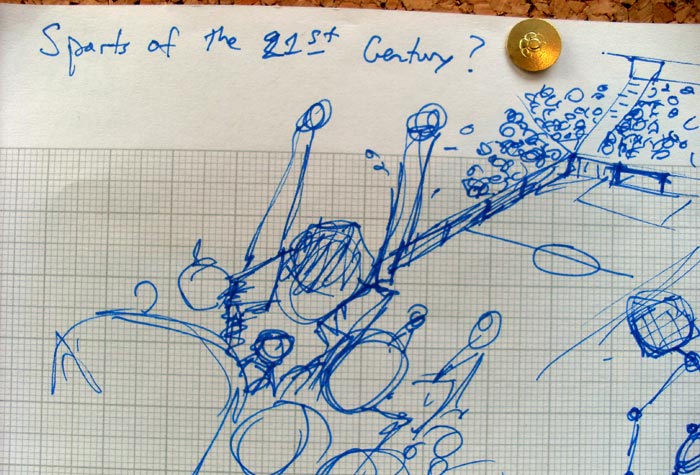 Sparts of the 21st Century?